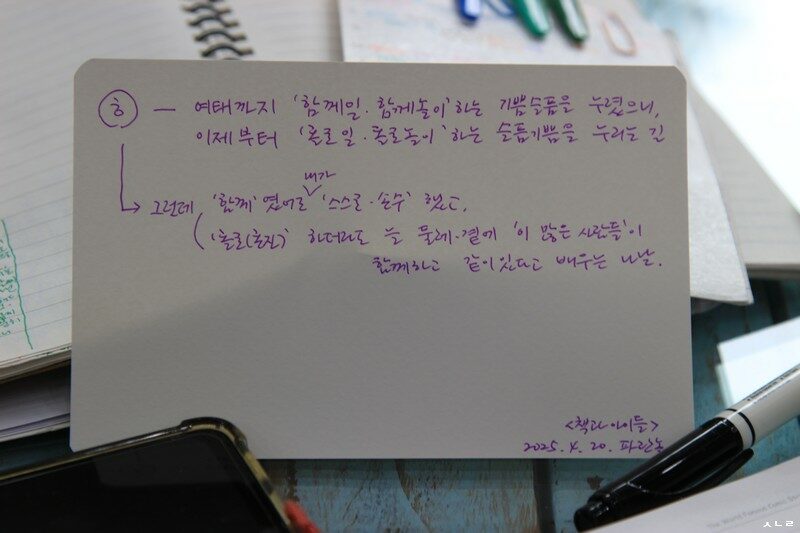 ㅎ — 여태까지 '함께일·함께놀이'하는 기쁨슬픔을 누렸으니,
이제부터 '홀로일·홀로놀이'하는 슬픔기쁨을 누리는 길
내가
그런데 '함께'였어도 '스스로·손수' 했고,
'홀로(혼자)' 하더라도 늘 둘레·곁에 '이 많은 사람들'이
함께하고 같이있다고 배우는 나날.
<책과아이들>
2025. 4. 20. 파란놀
The World Famous Comic
ㅅㄴㄹ